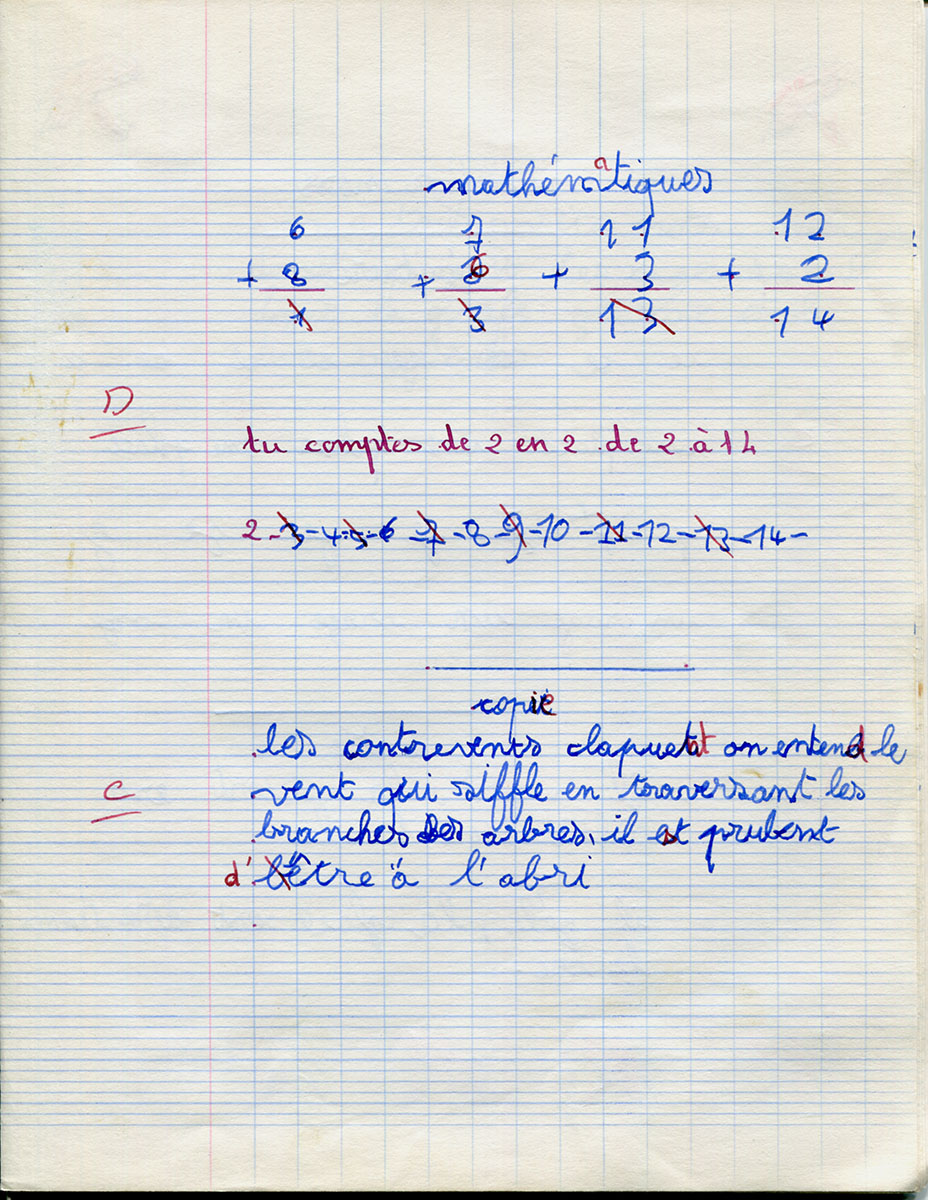 mathématiques
6 7 11 12
+ 8 + 6 + 3 + 2
1 3 13 14
D
tu comptes de 2 en 2 de 2 à 14
2 - 3 - 4 - 5 - 6 - 7 - 8 - 9 - 10 - 11 - 12 - 13 - 14 -
copie
les contrevents on entend le
C
vent qui siffle en traversant les
branches des arbres, il est
d'être à l'abri